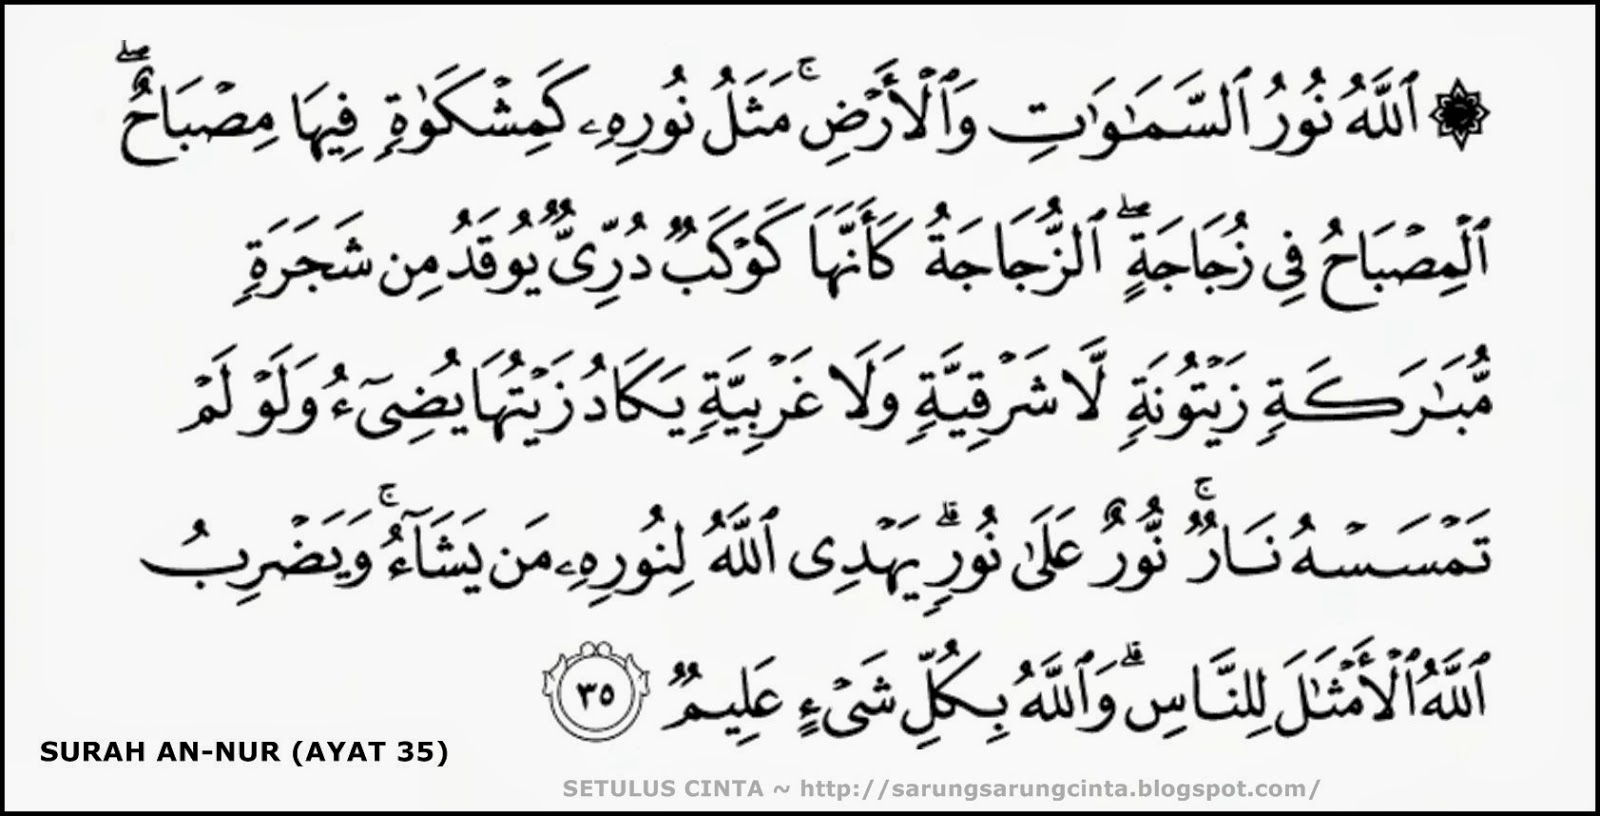 ۞ ٱللَّهُ نُورُ ٱلسَّمَٰوَٰتِ وَٱلْأَرْضِ ۚ مَثَلُ نُورِهِۦ كَمِشْكَوٰةٍ فِيهَا مِصْبَاحٌ ۖ
ٱلْمِصْبَاحُ فِى زُجَاجَةٍ ۖ ٱلزُّجَاجَةُ كَأَنَّهَا كَوْكَبٌ دُرِّىٌّ يُوقَدُ مِن شَجَرَةٍ
مُّبَٰرَكَةٍ زَيْتُونَةٍ لَّا شَرْقِيَّةٍ وَلَا غَرْبِيَّةٍ يَكَادُ زَيْتُهَا يُضِىٓءُ وَلَوْ لَمْ
تَمْسَسْهُ نَارٌ ۚ نُّورٌ عَلَىٰ نُورٍ ۗ يَهْدِى ٱللَّهُ لِنُورِهِۦ مَن يَشَآءُ ۚ وَيَضْرِبُ
ٱللَّهُ ٱلْأَمْثَٰلَ لِلنَّاسِ ۗ وَٱللَّهُ بِكُلِّ شَىْءٍ عَلِيمٌ ٣٥
SURAH AN-NUR (AYAT 35)
SETULUS CINTA ~ http://sarungsarungcinta.blogspot.com/